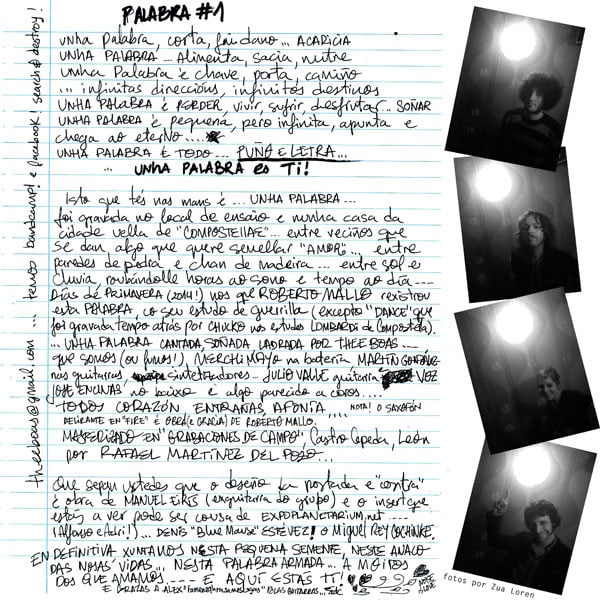 PALABRA #1
UNHA PALABRA, corta, fai dano... ACARICIA
UNHA PALABRA... Alimenta, sacia, nutre
UNHA PALABRA é chave, porta, camiño
... infinitas direccións, infinitos destinos
UNHA PALABRA é PERDER, vivir, sufrir, desfrutar... SOÑAR
UNHA PALABRA é pequena, pero infinita, apunta e
chega ao eterno....
UNHA PALABRA É TODO... PUÑO E LETRA...
... UNHA PALABRA es Ti!
Isto que tés nas mans é ... UNHA PALABRA...
foi gravada no local de ensaio e nunha casa da
cidade vella de "COMPOSTELLAE"... entre veciños que
se dan, algo que quere semellar "AMOR"... entre
paredes de pedra e chan de madeira... entre sol e
chuvia, roubándolle horas ao sono e tempo ao día...
DÍAS DE PRIMAVERA (2014!) nos que ROBERTO MALLO rexistrou
esta PALABRA, co seu estudo de guerrilla (excepto "DANCE" que
foi gravada tempo atrás por CHUCKO nos estudo LOMBARDI de Compostela).
... UNHA PALABRA CANTADA, SOÑADA LADRADA POR THEE BOAS...
que somos (ou fumos!), MERCHI MAYO na batería MARTÍN GONZÁLEZ
nas guitarras sintetizadores... JULIO VALLE guitarra VOZ
JOSE ENCINAS no baixo e algo parecido a coros....
TODOS CORAZÓN, ENTRAÑAS, AFONÍA .... NOTA! O SAXOFÓN
DELIRANTE EN "FIRE" É OBRA (E GRACIA) DE ROBERTO MALLO.
MASTERIZADO EN "GRABACIONES DE CAMPO" Castro Cepeda, León
por RAFAEL MARTÍNEZ DEL POZO...
Que sepan ustedes que o deseño da portada e "contra"
é obra de MANUEL EIRÍS (exguitarra do grupo) e o insert que
estás a ver pode ser cousa de EXPOPLANETARIUM.net
(Alfonso e Adri!)... DENIS "Blue Mause" ESTÉVEZ! O MIGUEL REY
EN DEFINITIVA XUNTAMOS NESTA PEQUENA SEMENTE, NESTE ANACO
DAS NOSAS VIDAS... NESTA PALABRA ARMADA... A MOITOS
DOS QUE AMAMOS.... E AQUÍ ESTAS TI!
E GRAZAS A ALEX POLAS GUITARRAS...
theeboas@gmail.com ... temos bandcamp! e facebook! search & destroy!
fotos por Zua Loren